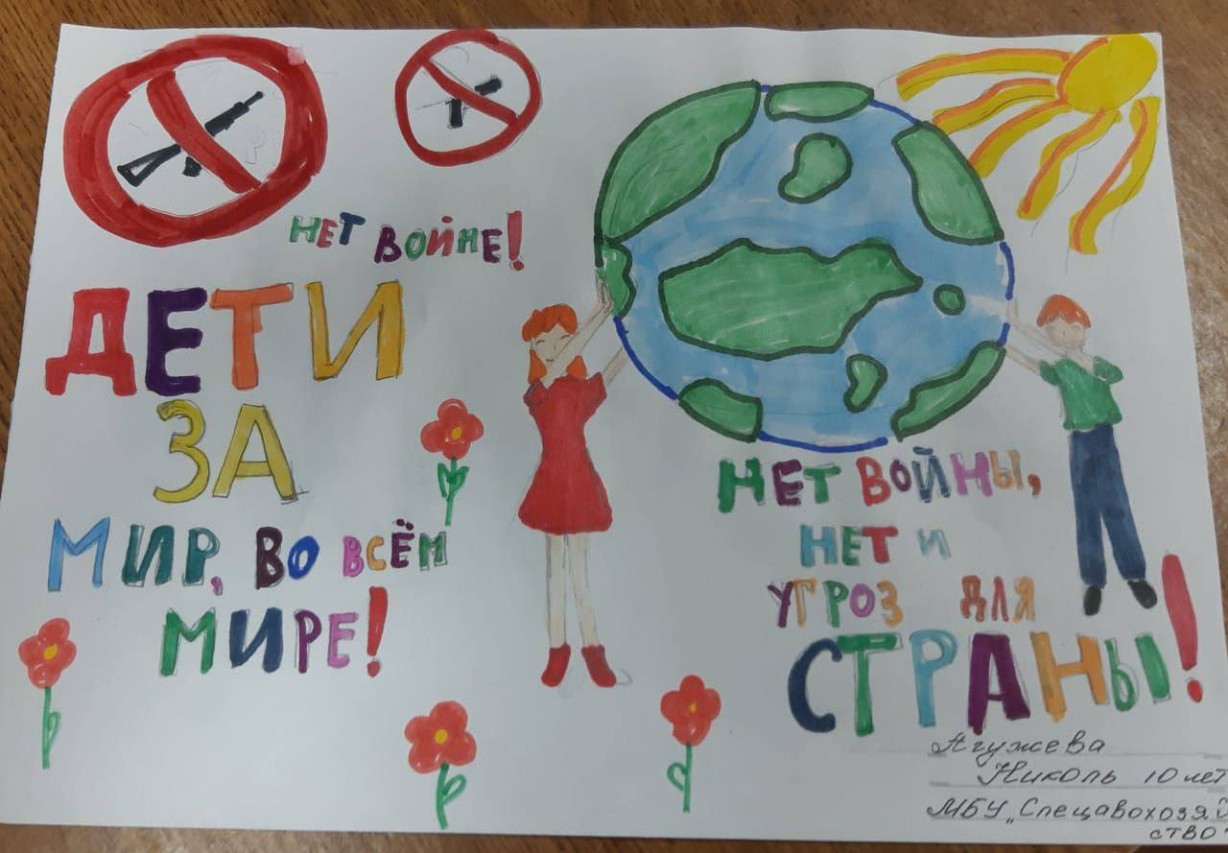 НЕТ ВОЙНЕ!
ДЕТИ
ЗА
МИР, ВО ВСЁМ
МИРЕ!
НЕТ ВОЙНЫ,
НЕТ И
УГРОЗ ДЛЯ
СТРАНЫ!
Агужева
Николь 10 лет
МБУ „Спецавохозяй
ство"